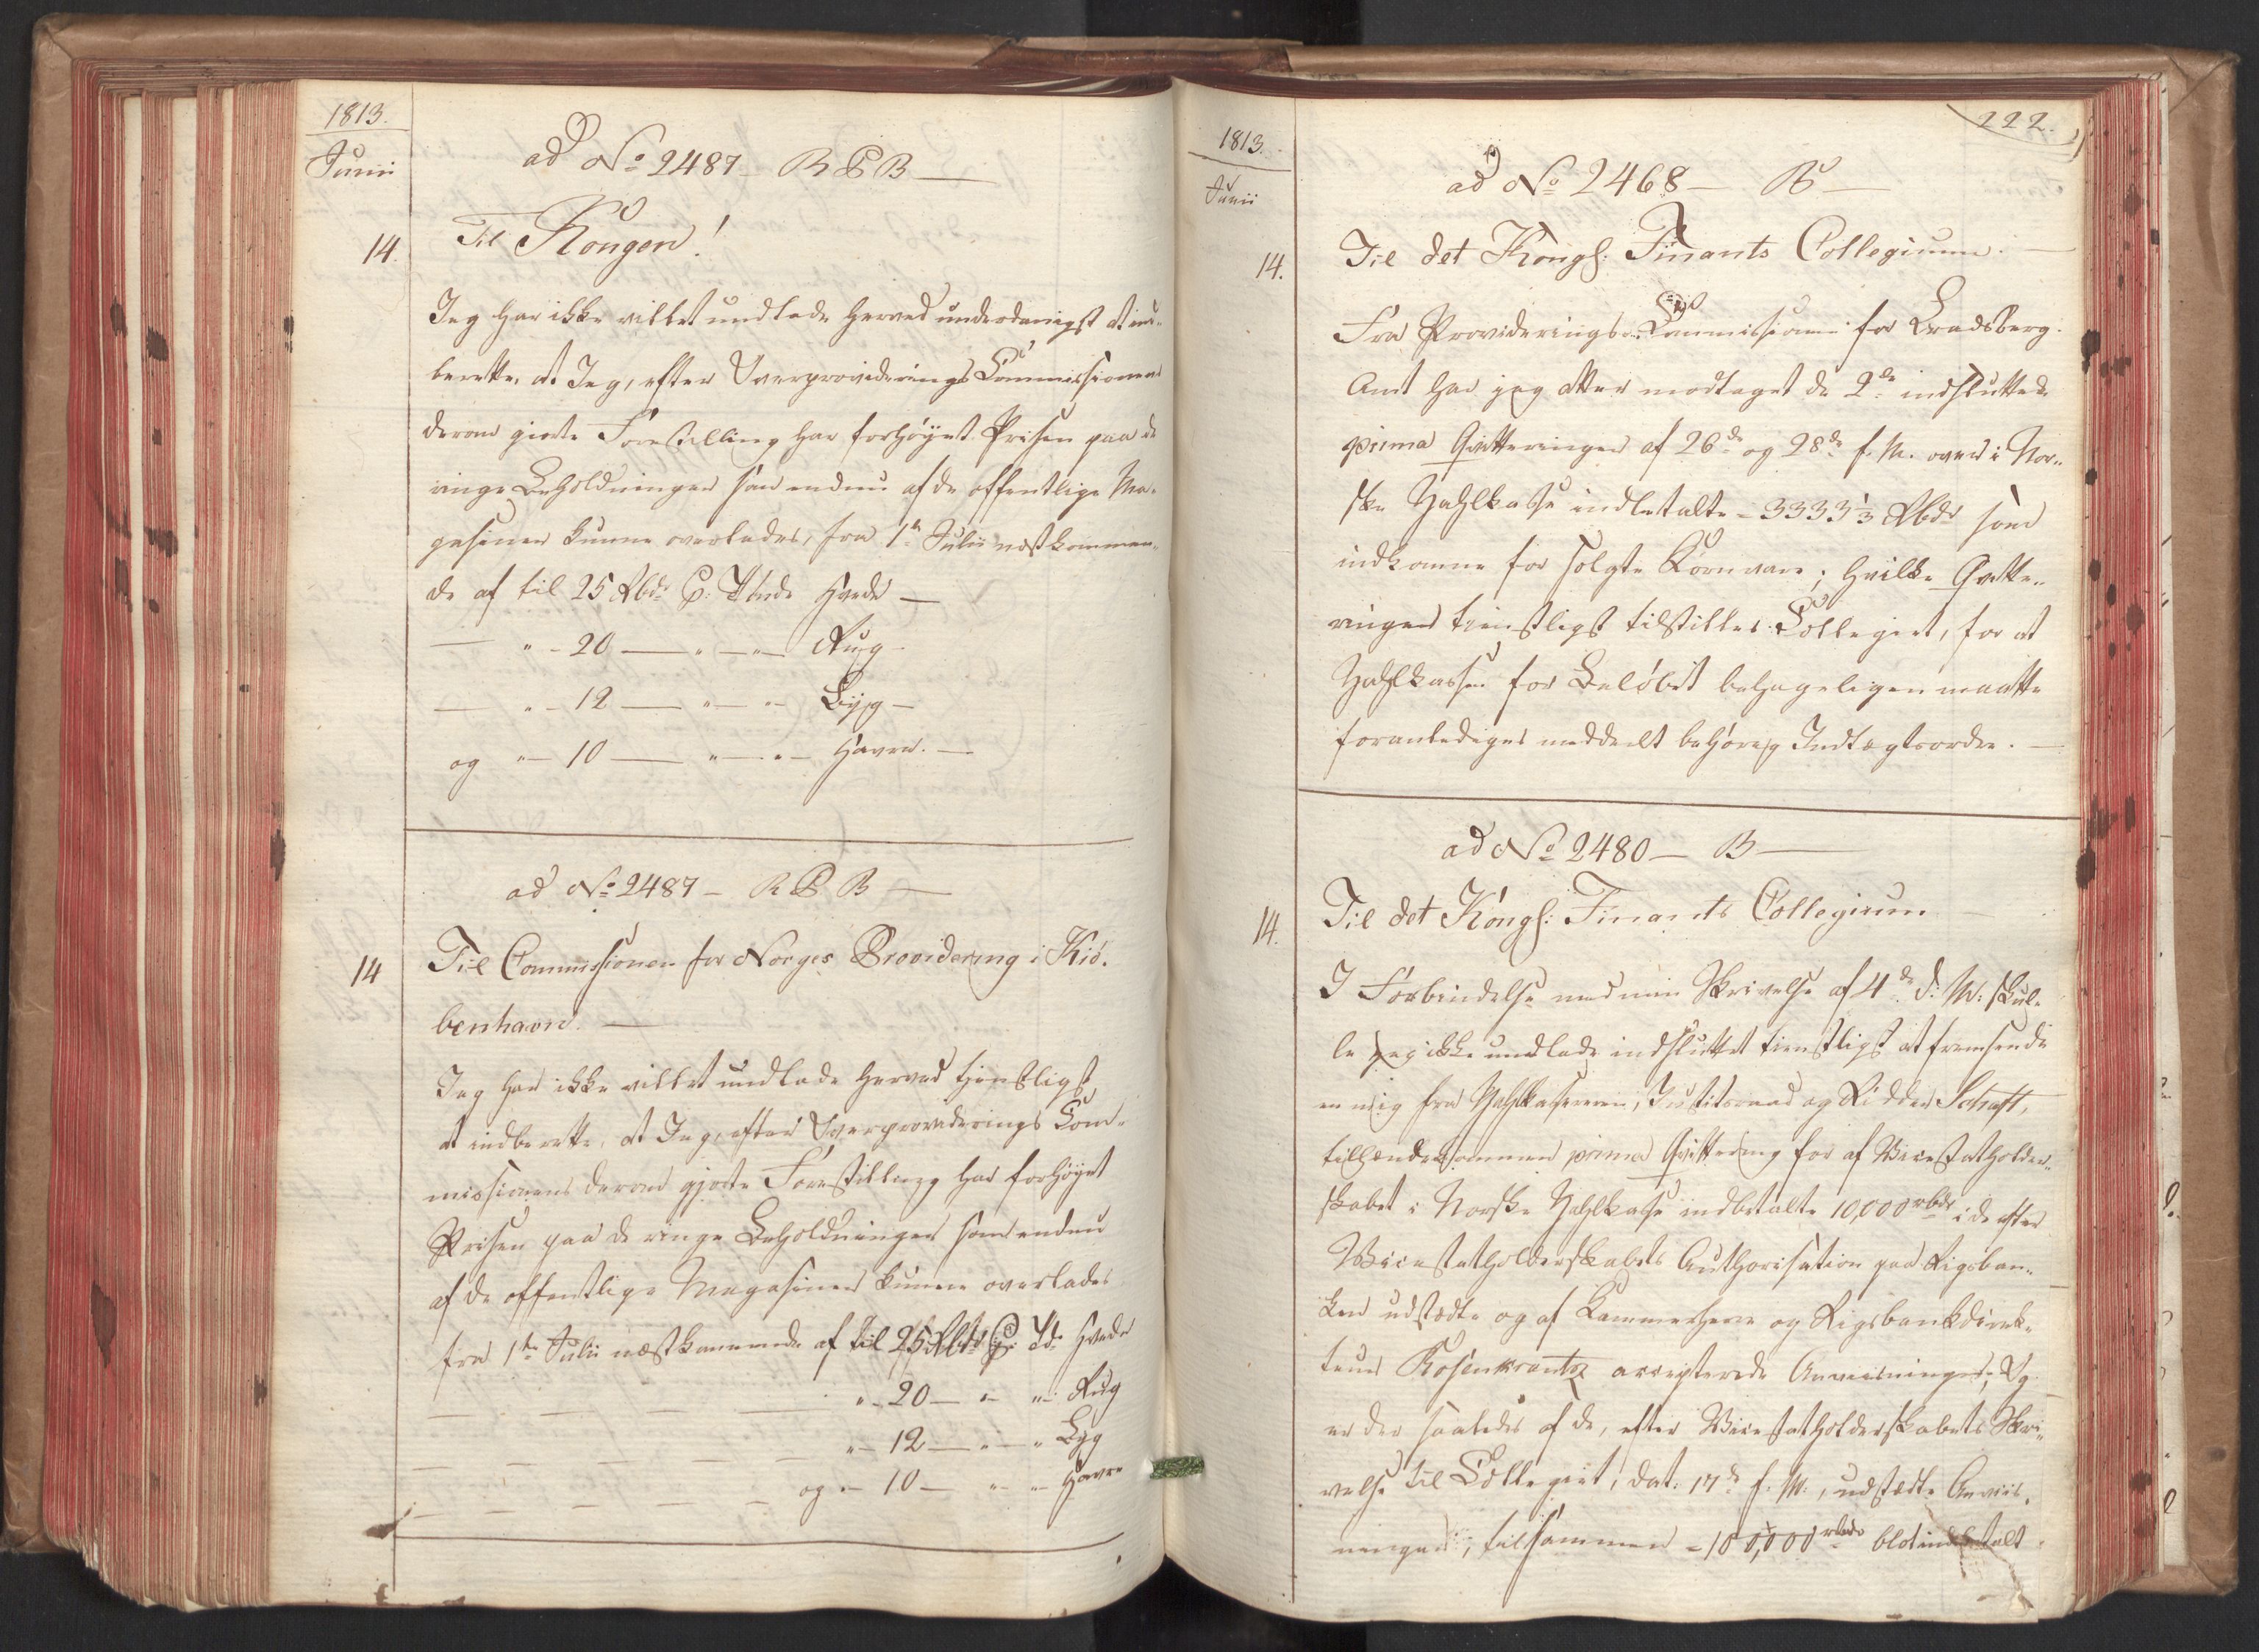 1813.
Junii
ad No 2487 - R P B -
14.
Til Kongen!
Jeg har ikke villet undlade herved underdanigst at ind-
berette, at Jeg, efter Overproviderings Commissionens
derom giorte Forestilling har forhøyet Prisen paa de
ringe Beholdninger som endnu af de offentlige Ma-
gasiner kunne overlades, fra 1te Julii næstkommen-
de af til 25 Rbdr P: Tønde Hvede -
— " - 20 — " — " — Rug -
— " - 12 — " — " — Byg -
og " - 10 — " — " — Havre. -
ad No 2487 - R P B -
14
Til Commissionen for Norges Providering i Kiö-
benhavn. -
Jeg har ikke villet undlade herved tjenstligst
at indberette, at Jeg, efter Overproviderings Com-
missionens derom gjorte Forestilling har forhøyet
Prisen paa de ringe Beholdninger som endnu
af de offentlige Magasiner kunne overlades
fra 1te Julii næstkommende af til 25 Rbdr P: Td. Hvede
— — — — " - 20 — " — " - Rug
— — — — — " - 12 — " — " Byg
— — — — — og " - 10 — " — " Havre
1813.
Junii
222.
ad No 2468 - B -
14.
Til det Kongl: Finants Collegium. -
Fra Providerings-Commissionen for Bradsberg
Amt har jeg atter modtaget de 2de indsluttede
prima Qvitteringer af 26de og 28de f. M. over i Nor-
ske Zahlkasse indbetalte - 3333 1/3 Rbdr som
indkomne for solgte Kornvare; hvilke Qvitte-
ringer tienstligst tilstilles Collegiet, for at
Zahlkassen for Beløbet behageligen maatte
foranlediges meddeelt behørig Indtægtsordre. -
ad No 2480 - B -
14.
Til det Kongl: Finants Collegium
I Forbindelse med min Skrivelse af 4de d: M: skul-
le jeg ikke undlade indsluttet tienstligst at fremsende
en mig fra Zahlkasereren, Justitsraad og Ridder Schaft,
tilhændekommen prima Qvittering for af Vicestatholder-
skabet i Norske Zahlkasse indbetalte 10,000 rbdr i de efter
Vicestatholderskabets Authorisation paa Rigsban-
ken udstædte og af Kammerherre og Rigsbankdirek-
teur Rosenkrantz accepterede Anviisninger; Og
er der saaledes af de, efter Vicestatholderskabets Skri-
velse til Collegiet, dat: 17de f. M., udstædte Anviis-
ninger, tilsammen - 100,000 rbdr blot indbetalt